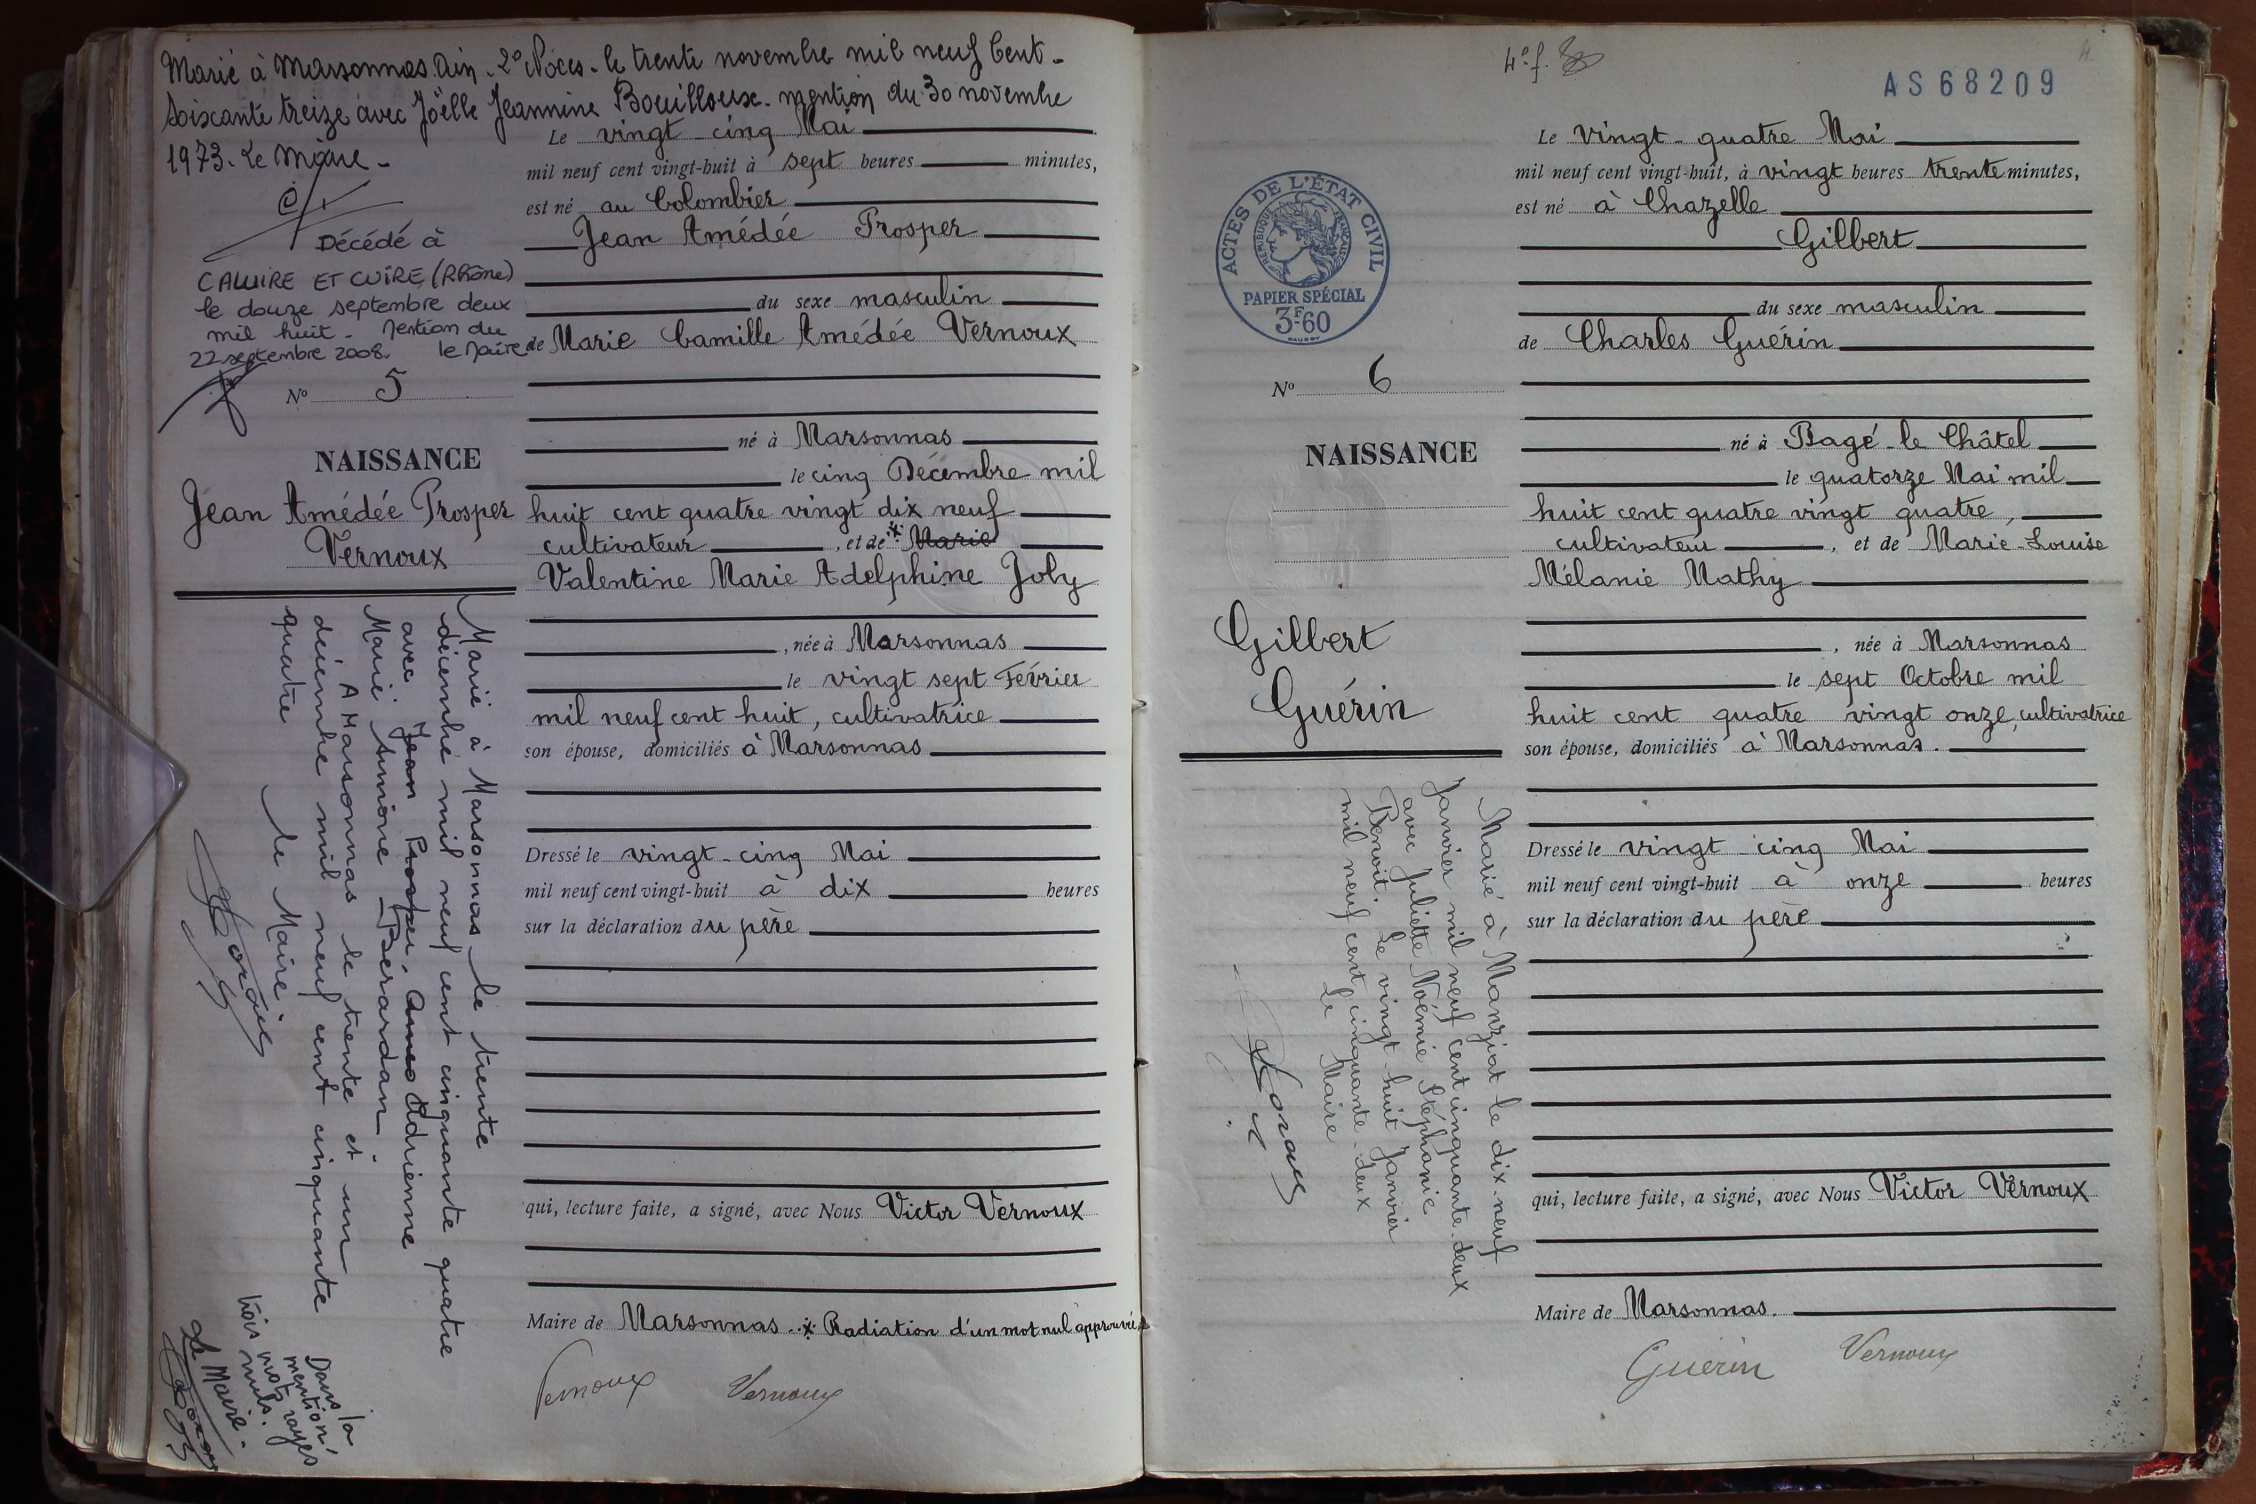 Marié à Marsonnas Ain. 2e Noces. le trente novembre mil neuf Cent-
soixante treize avec Joëlle Jeannine Bouilloux. mention du 30 novembre
1973. Le Maire -
Décédé à
CALUIRE ET CUIRE (Rhône)
le douze septembre deux
mil huit - Mention du
22 septembre 2008. le Maire
No 5
NAISSANCE
Jean Amédée Prosper
Vernoux
Marié à Marsonnas le trente
décembre mil neuf cent cinquante quatre
avec Jean Prosper. Adrienne
Marie Simone Berardan.
A Marsonnas le trente et un
décembre mil neuf cent cinquante
quatre le Maire
Dans la
mention
trois mots rayés
nuls.
Le Maire.
Le vingt-cinq Mai
mil neuf cent vingt-huit à sept heures minutes,
est né au Colombier
Jean Amédée Prosper
du sexe masculin
de Marie Camille Amédée Vernoux
né à Marsonnas
le cinq Décembre mil
huit cent quatre vingt dix neuf
cultivateur, et de x Marie
Valentine Marie Adelphine Joly
, née à Marsonnas
le vingt sept Février
mil neuf cent huit, cultivatrice
son épouse, domiciliés à Marsonnas
Dressé le vingt-cinq Mai
mil neuf cent vingt-huit à dix heures
sur la déclaration du père
qui, lecture faite, a signé, avec Nous Victor Vernoux
Maire de Marsonnas. x Radiation d'un mot nul approuvée
Vernoux Vernoux
4e f.
4
AS 68209
ACTES DE L'ÉTAT CIVIL
RÉPUBLIQUE FRANÇAISE
PAPIER SPÉCIAL
3F.60
No 6
NAISSANCE
Gilbert
Guérin
Marié à Manziat le dix-neuf
Janvier mil neuf cent cinquante-deux
avec Juliette Noémie Stéphanie
Benoit. Le vingt-huit Janvier
mil neuf cent cinquante-deux
Le Maire
Le vingt-quatre Mai
mil neuf cent vingt-huit, à vingt heures trente minutes,
est né à Chazelle
Gilbert
du sexe masculin
de Charles Guérin
né à Bagé-le Châtel
le quatorze Mai mil
huit cent quatre vingt quatre,
cultivateur, et de Marie-Louise
Mélanie Mathy
, née à Marsonnas
le sept Octobre mil
huit cent quatre vingt onze, cultivatrice
son épouse, domiciliés à Marsonnas.
Dressé le vingt-cinq Mai
mil neuf cent vingt-huit à onze heures
sur la déclaration du père
qui, lecture faite, a signé, avec Nous Victor Vernoux
Maire de Marsonnas.
Guérin Vernoux